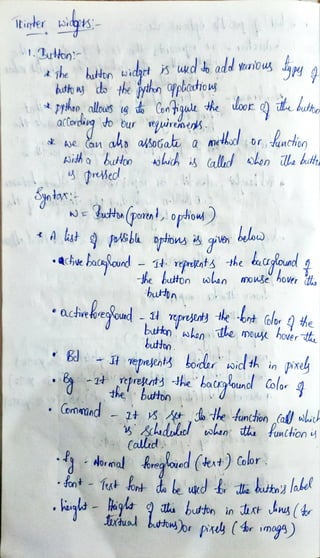 Tkinter widgets:-
1. Button:-
* The button widget is used to add various types of
buttons to the python applications
* python allows us to configure the look of the button
according to our requirements.
* we can also associate a method or function
with a button which is called when the button
is pressed
Syntax:-
W = Button(parent, options)
* A list of possible options is given below
• active background - It represents the background of
the button when mouse hover the
button
• activeforeground - It represents the font color of the
button when the mouse hover the
button.
• Bd - It represents border width in pixels
• Bg - It represents the background color of
the button
• Command - It is set to the function call which
is scheduled when the function is
called.
• fg - Normal foreground (text) color.
• font - Text font to be used for the button's label
• height - Height of the button in text lines (for
textual buttons) or pixels (for images)